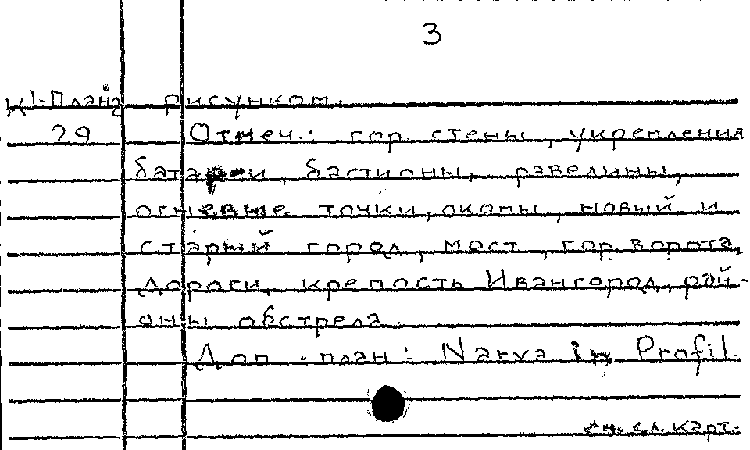 3
К1-План рисунком.
29 Отмеч.: гор. стены, укрепления
батареи, бастионы, равелины,
огневые точки, окопы, новый и
старый город, мост, гор. ворота,
дороги, крепость Ивангород, рай-
оны обстрела.
Доп. план: Narva in Profil.
см. сл. карт.